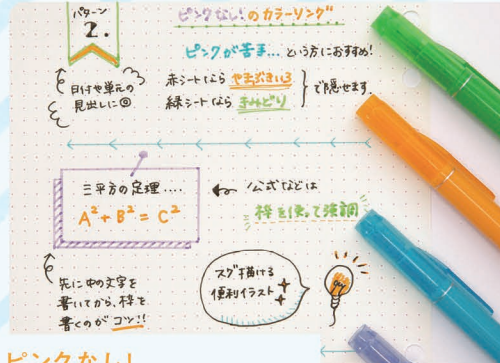 パターン
2.
ピンクなし!のカラーリング
ピンクが苦手…という方におすすめ!
赤シートなら やまぶきいろ
緑シートなら きみどり
で隠せます。
日付や単元の
見出しに◎
三平方の定理....
A²+B²=C²
公式などは
枠を使って強調
先に中の文字を
書いてから、枠を
書くのがコツ!!
スグ描ける
便利イラスト
ピンクなし!